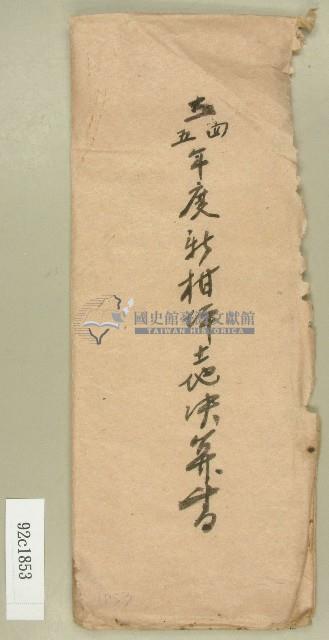 五年度新柑坪土地決算書
國史館臺灣文獻館
TAIWAN HISTORICA
92c1853
1853